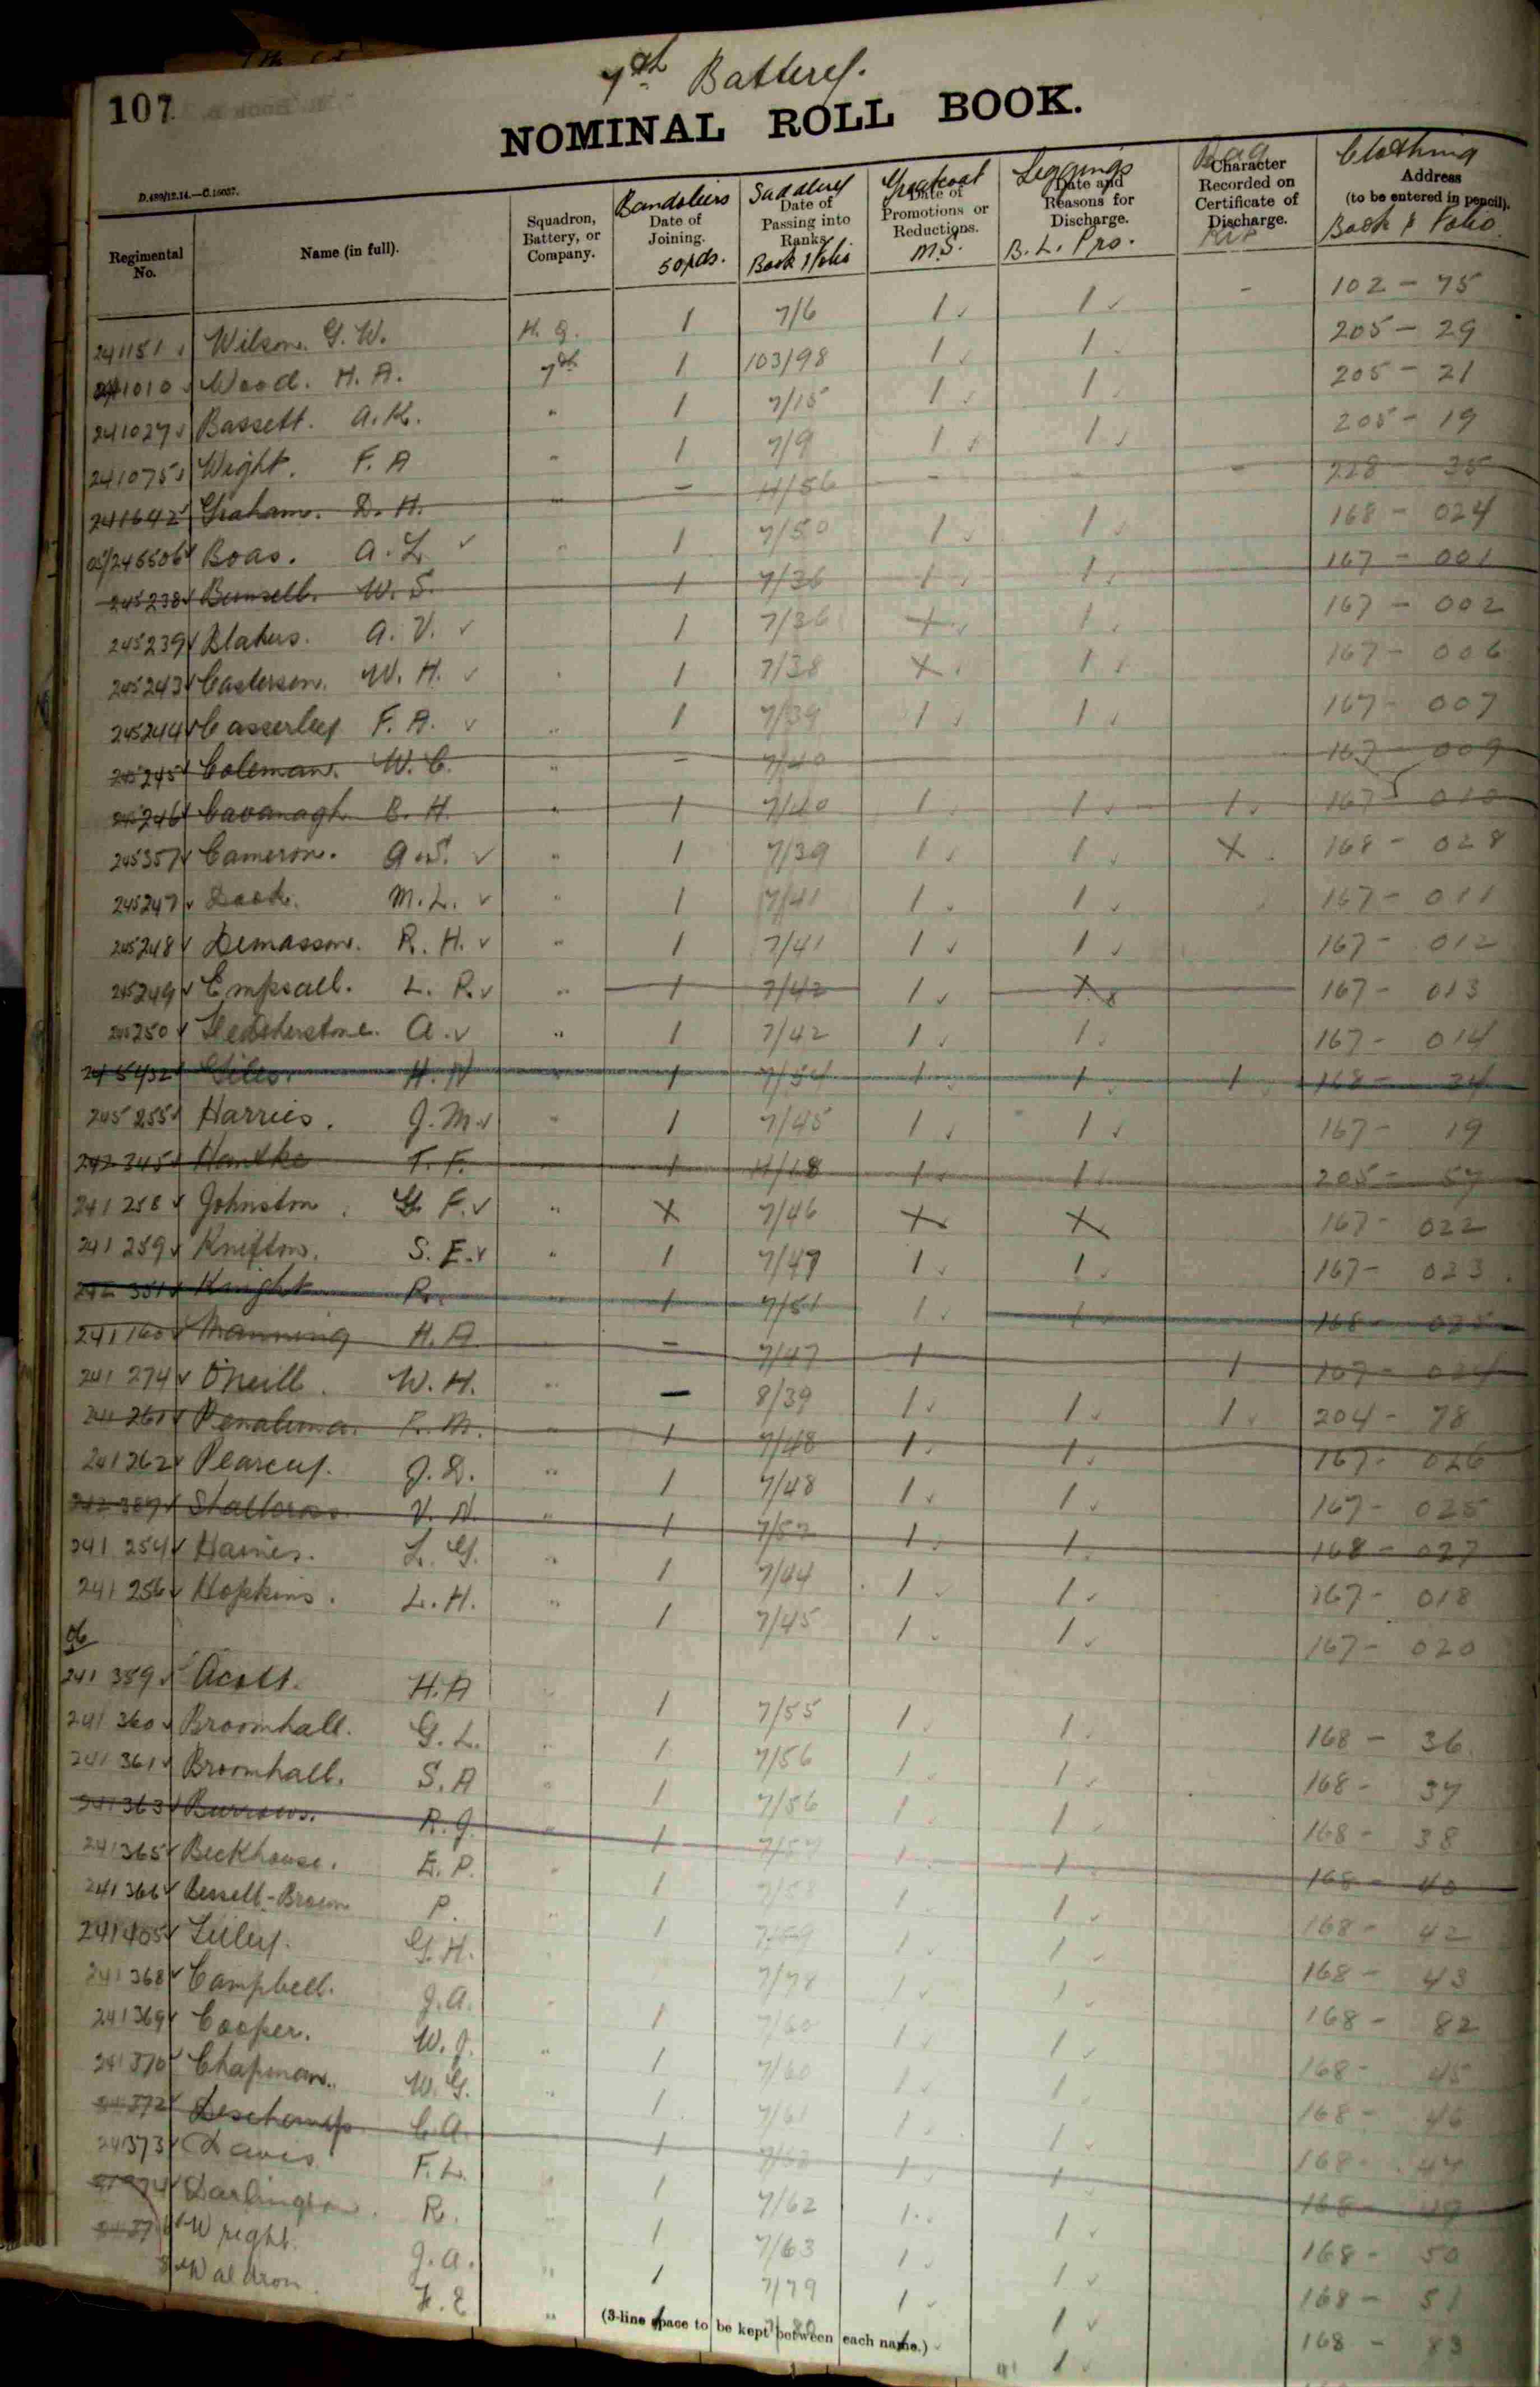 7th Battery.
107
NOMINAL ROLL BOOK.
D.489/12.14.—C.16037.
Regimental No. Name (in full). Squadron, Battery, or Company. Bandoliers Date of Joining. 50 rds. Saddlery Date of Passing into Ranks. Book & Folio Greatcoat Date of Promotions or Reductions. M.S. Leggings Date and Reasons for Discharge. B.L. Pro. Character Recorded on Certificate of Discharge. Clothing Address (to be entered in pencil). Book & Folio.
241151 Wilson. G. W. H. Q. 1 7/6 1 1 - 102 - 75
1010 Wood. H. A. 7th 1 103/98 1 1 205 - 29
241027 Bassett. A. K. " 1 7/15 1 1 205 - 21
241075 Wight. F. A " 1 7/9 1 1 205 - 19
241642 Graham. D. H. " - 11/56 - - - 228 - 35
245506 Boas. A. L. " 1 7/50 1 1 168 - 024
245238 W. S. 1 7/36 1 1 167 - 001
245239 Blakers. A. V. 1 7/36 1 1 167 - 002
245243 Casterson. W. H. " 1 7/38 X 1 167 - 006
245244 Casserley F. A. " 1 7/39 1 1 167 - 007
245245 Coleman. W. C. " - 7/40 167 - 009
245246 Cavanagh. C. H. " 1 7/40 1 1 1 167 - 010
245357 Cameron. A. S. " 1 7/39 1 1 X 168 - 028
245247 M. L. " 1 7/41 1 1 167 - 011
245248 Demasson. R. H. " 1 7/41 1 1 167 - 012
245249 Empsall. L. R. " 1 7/42 1 X 167 - 013
245250 Featherstone. A. " 1 7/42 1 1 167 - 014
245432 Giles. H. " 1 7/54 1 1 1 168 - 34
245255 Harries. J. M. " 1 7/45 1 1 167 - 19
242345 Hantke T. F. 1 11/18 1 1 205 - 57
241258 Johnston. G. F. " X 7/46 X X 167 - 022
241259 Knifton. S. E. " 1 7/47 1 1 167 - 023
242351 Knight R. 1 7/51 1 1 168 - 025
241160 Manning H. A. - 7/47 1 1 167 - 024
241274 O'Neill. W. H. " - 8/39 1 1 1 204 - 78
241261 Penaluna. F. M. " 1 7/48 1 1 167 - 026
241262 Pearcey. J. D. " 1 7/48 1 1 167 - 025
242 Shallcross. V. N. " 1 7/52 1 1 168 - 027
241254 Haines. L. G. " 1 7/44 1 1 167 - 018
241256 Hopkins. L. H. " 1 7/45 1 1 167 - 020
06
241359 Acott. H. A " 1 7/55 1 1 168 - 36
241360 Broomhall. G. L. " 1 7/56 1 1 168 - 37
241361 Broomhall. S. A " 1 7/56 1 1 168 - 38
241363 Burrows. R. J. " 1 7/57 1 1 168 - 40
241365 Beckhouse. E. P. " 1 7/58 1 1 168 - 42
241366 Bessell-Brown P. " 1 7/59 1 1 168 - 43
241405 Lilley. G. H. 7/78 1 1 168 - 82
241368 Campbell. J. A. 1 7/60 1 1 168 - 45
241369 Cooper. W. J. " 1 7/60 1 1 168 - 46
241370 Chapman. W. G. " 1 7/61 1 1 168 - 47
372 Deschamp C. A. 1 1 1 168 - 49
241373 Davis F. L. 1 7/62 1 1 168 - 50
Darlington. R. 1 7/63 1 1 168 - 51
Wright. J. A. " 1 7/79 1 1 168 - 83
Waldron. " 1 1
(3-line space to be kept between each name.)